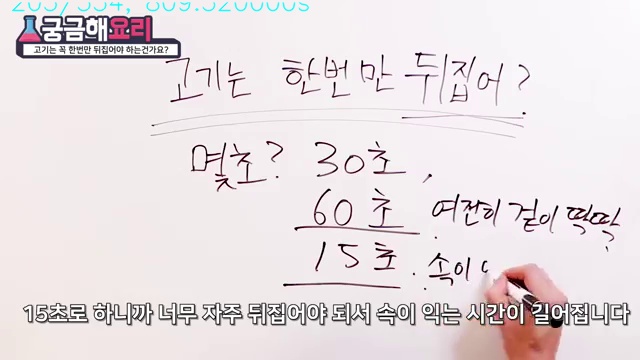 궁금해요리
고기는 꼭 한번만 뒤집어야 하는건가요?
고기는 한번만 뒤집어?
몇초? 30초,
60초 여전히 겉이 딱딱.
15초. 속이
15초로 하니까 너무 자주 뒤집어야 되서 속이 익는 시간이 길어집니다